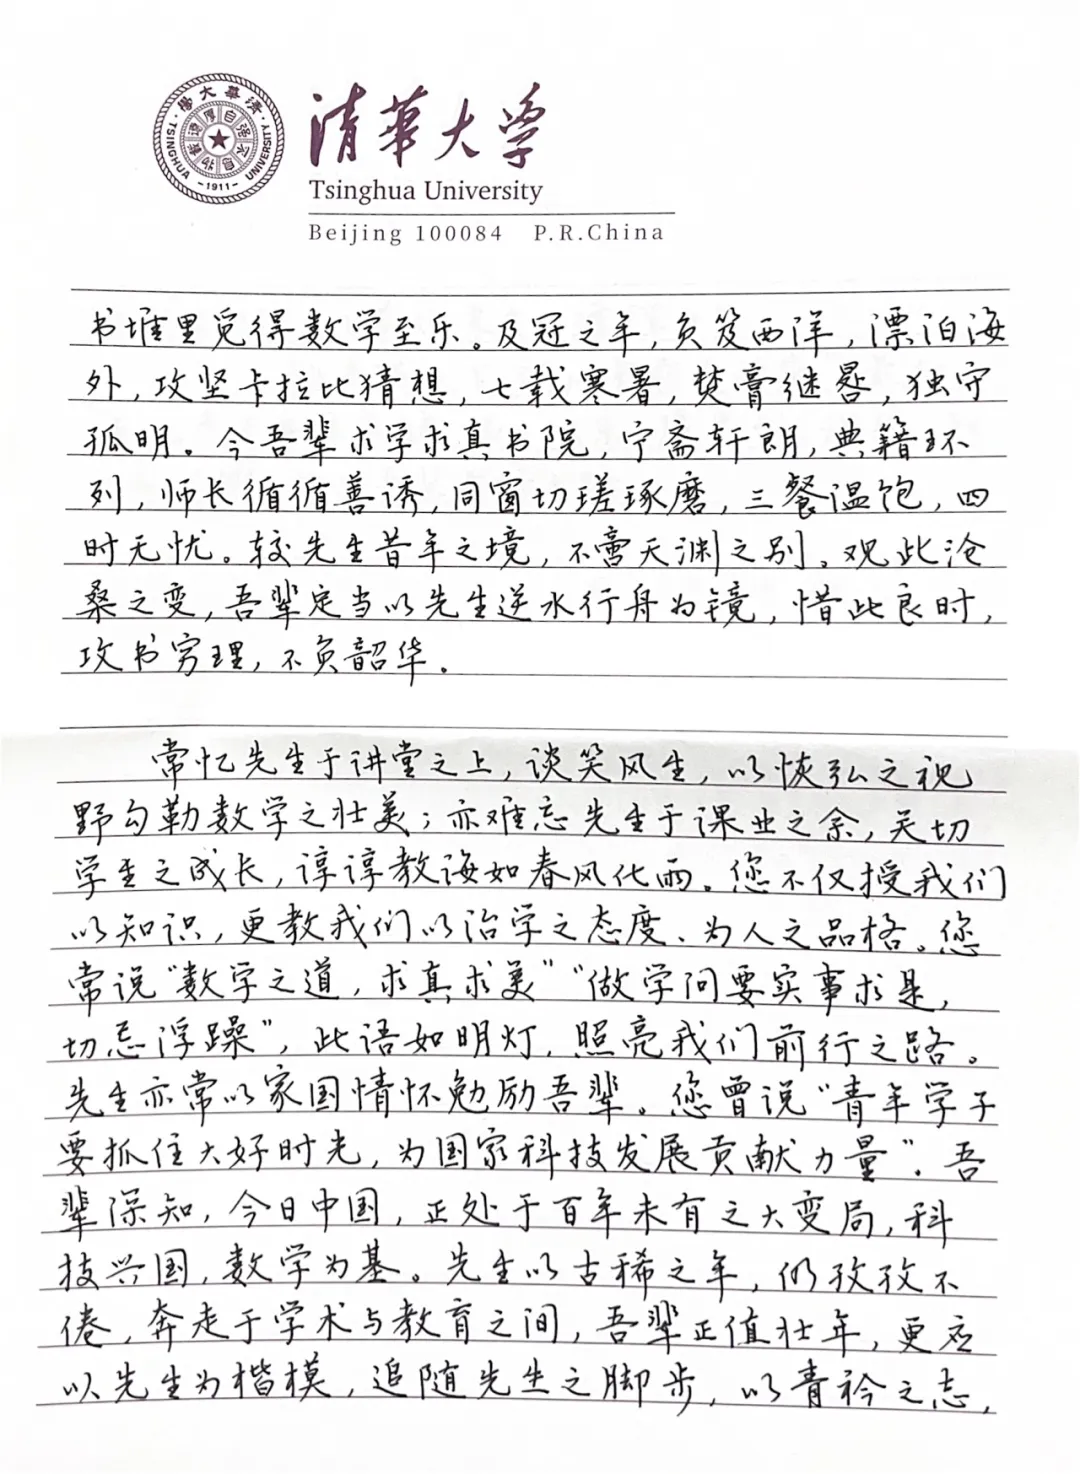 清華大学
Tsinghua University
Beijing 100084 P.R.China
書大學
TSINGHUA UNIVERSITY
自强不息
厚德
物
-1911-
书堆里觅得数学至乐。及冠之年，负笈西洋，漂泊海
外，攻坚卡拉比猜想，七载寒暑，焚膏继晷，独守
孤明。今吾辈求学求真书院，宁斋轩朗，典籍环
列，师长循循善诱，同窗切瑳琢磨，三餐温饱，四
时无忧。较先生昔年之境，不啻天渊之别。观此沧
桑之变，吾辈定当以先生逆水行舟为镜，惜此良时，
攻书穷理，不负韶华。
常忆先生于讲堂之上，谈笑风生，以恢弘之视
野勾勒数学之壮美；亦难忘先生于课业之余，关切
学生之成长，谆谆教诲如春风化雨。您不仅授我们
以知识，更教我们以治学之态度、为人之品格。您
常说“数学之道，求真求美”“做学问要实事求是，
切忌浮躁”，此语如明灯，照亮我们前行之路。
先生亦常以家国情怀勉励吾辈。您曾说“青年学子
要抓住大好时光，为国家科技发展贡献力量”。吾
辈深知，今日中国，正处于百年未有之大变局，科
技兴国，数学为基。先生以古稀之年，仍孜孜不
倦，奔走于学术与教育之间，吾辈正值壮年，更应
以先生为楷模，追随先生之脚步，以青衿之志，